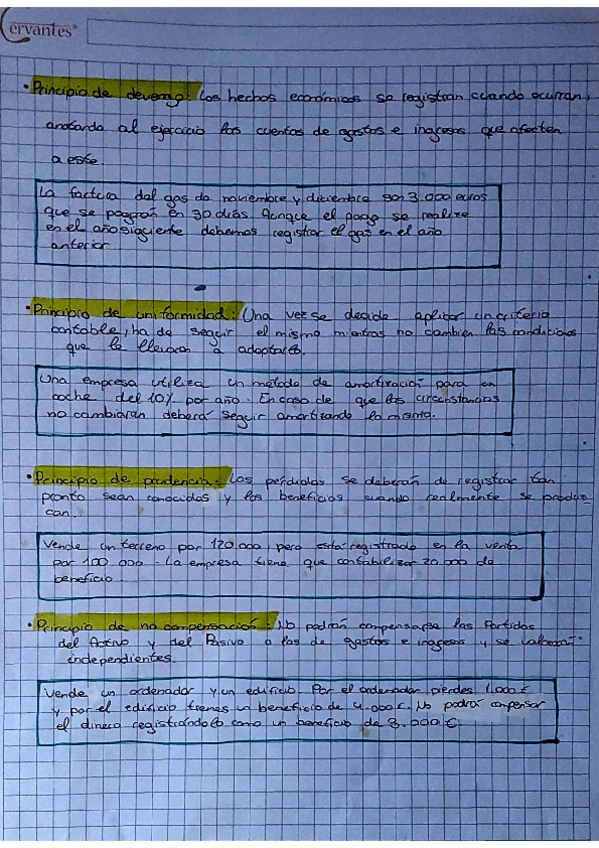 Cervantes
• Principio de devengo: Los hechos económicos se registran cuando ocurran,
anotando al ejercicio las cuentas de gastos e ingresos que afecten
a este.
La factura del gas de noviembre y diciembre son 3.000 euros
que se pagarán en 30 días. Aunque el pago se realize
en el año siguiente debemos registrar el gas en el año
anterior
• Principio de uniformidad: Una vez se decide aplicar un criterio
contable, ha de seguir el mismo mientras no cambien las condiciones
que le llevaron a adoptarlo.
Una empresa utiliza un método de amortización para un
coche del 10% por año. En caso de que las circunstancias
no cambiaran deberá seguir amortizando lo mismo.
• Principio de prudencia: Las pérdidas se deberán de registrar tan
pronto sean conocidas y los beneficios cuando realmente se produz
can.
Vende un terreno por 120.000, pero está registrado en la venta
por 100.000. La empresa tiene que contabilizar 20.000 de
beneficio
• Principio de no compensación: No podrán compensarse las Partidas
del Activo y del Pasivo o las de gastos e ingresos y se valorarán
independientes.
Vende un ordenador y un edificio. Por el ordenador pierdes 1.000 €
y por el edificio tienes un beneficio de 4.000 €. No podrás compensar
el dinero registrándolo como un beneficio de 3.000 €.